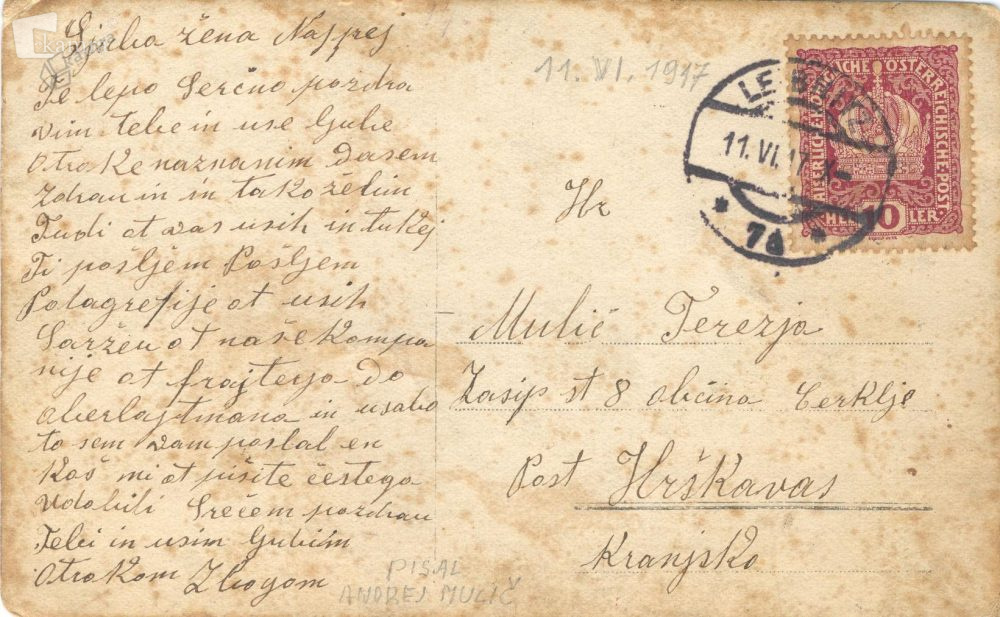 žena Najprej
Te lepo Serčno pozdra
vim tebe in use Gube
Otroke naznanim dasem
Zdrau in in tako želim
Tudi ot vas usih in tukej
Ti pošljem Pošljem
Potagrefije ot usih
Šaržeu ot naše Kompa
nije ot frajterja do
oberlajtmana in usabo
to sem vam poslal en
Koš mi ot pišite če ste ga
Vdobili Srečem pozdrau
Tebi in usim Gubim
Otrokom Zbogom
PISAL
ANDREJ MULIČ
11. VI. 1917
KAISERLICHE KÖNIGLICHE ÖSTERREICHISCHE POST
HELLER 10
11. VI. 17
* 7a *
Hr
Mulič Terezja
Zasip st 8 občina Cerklje
Post Hrškavas
Kranjsko